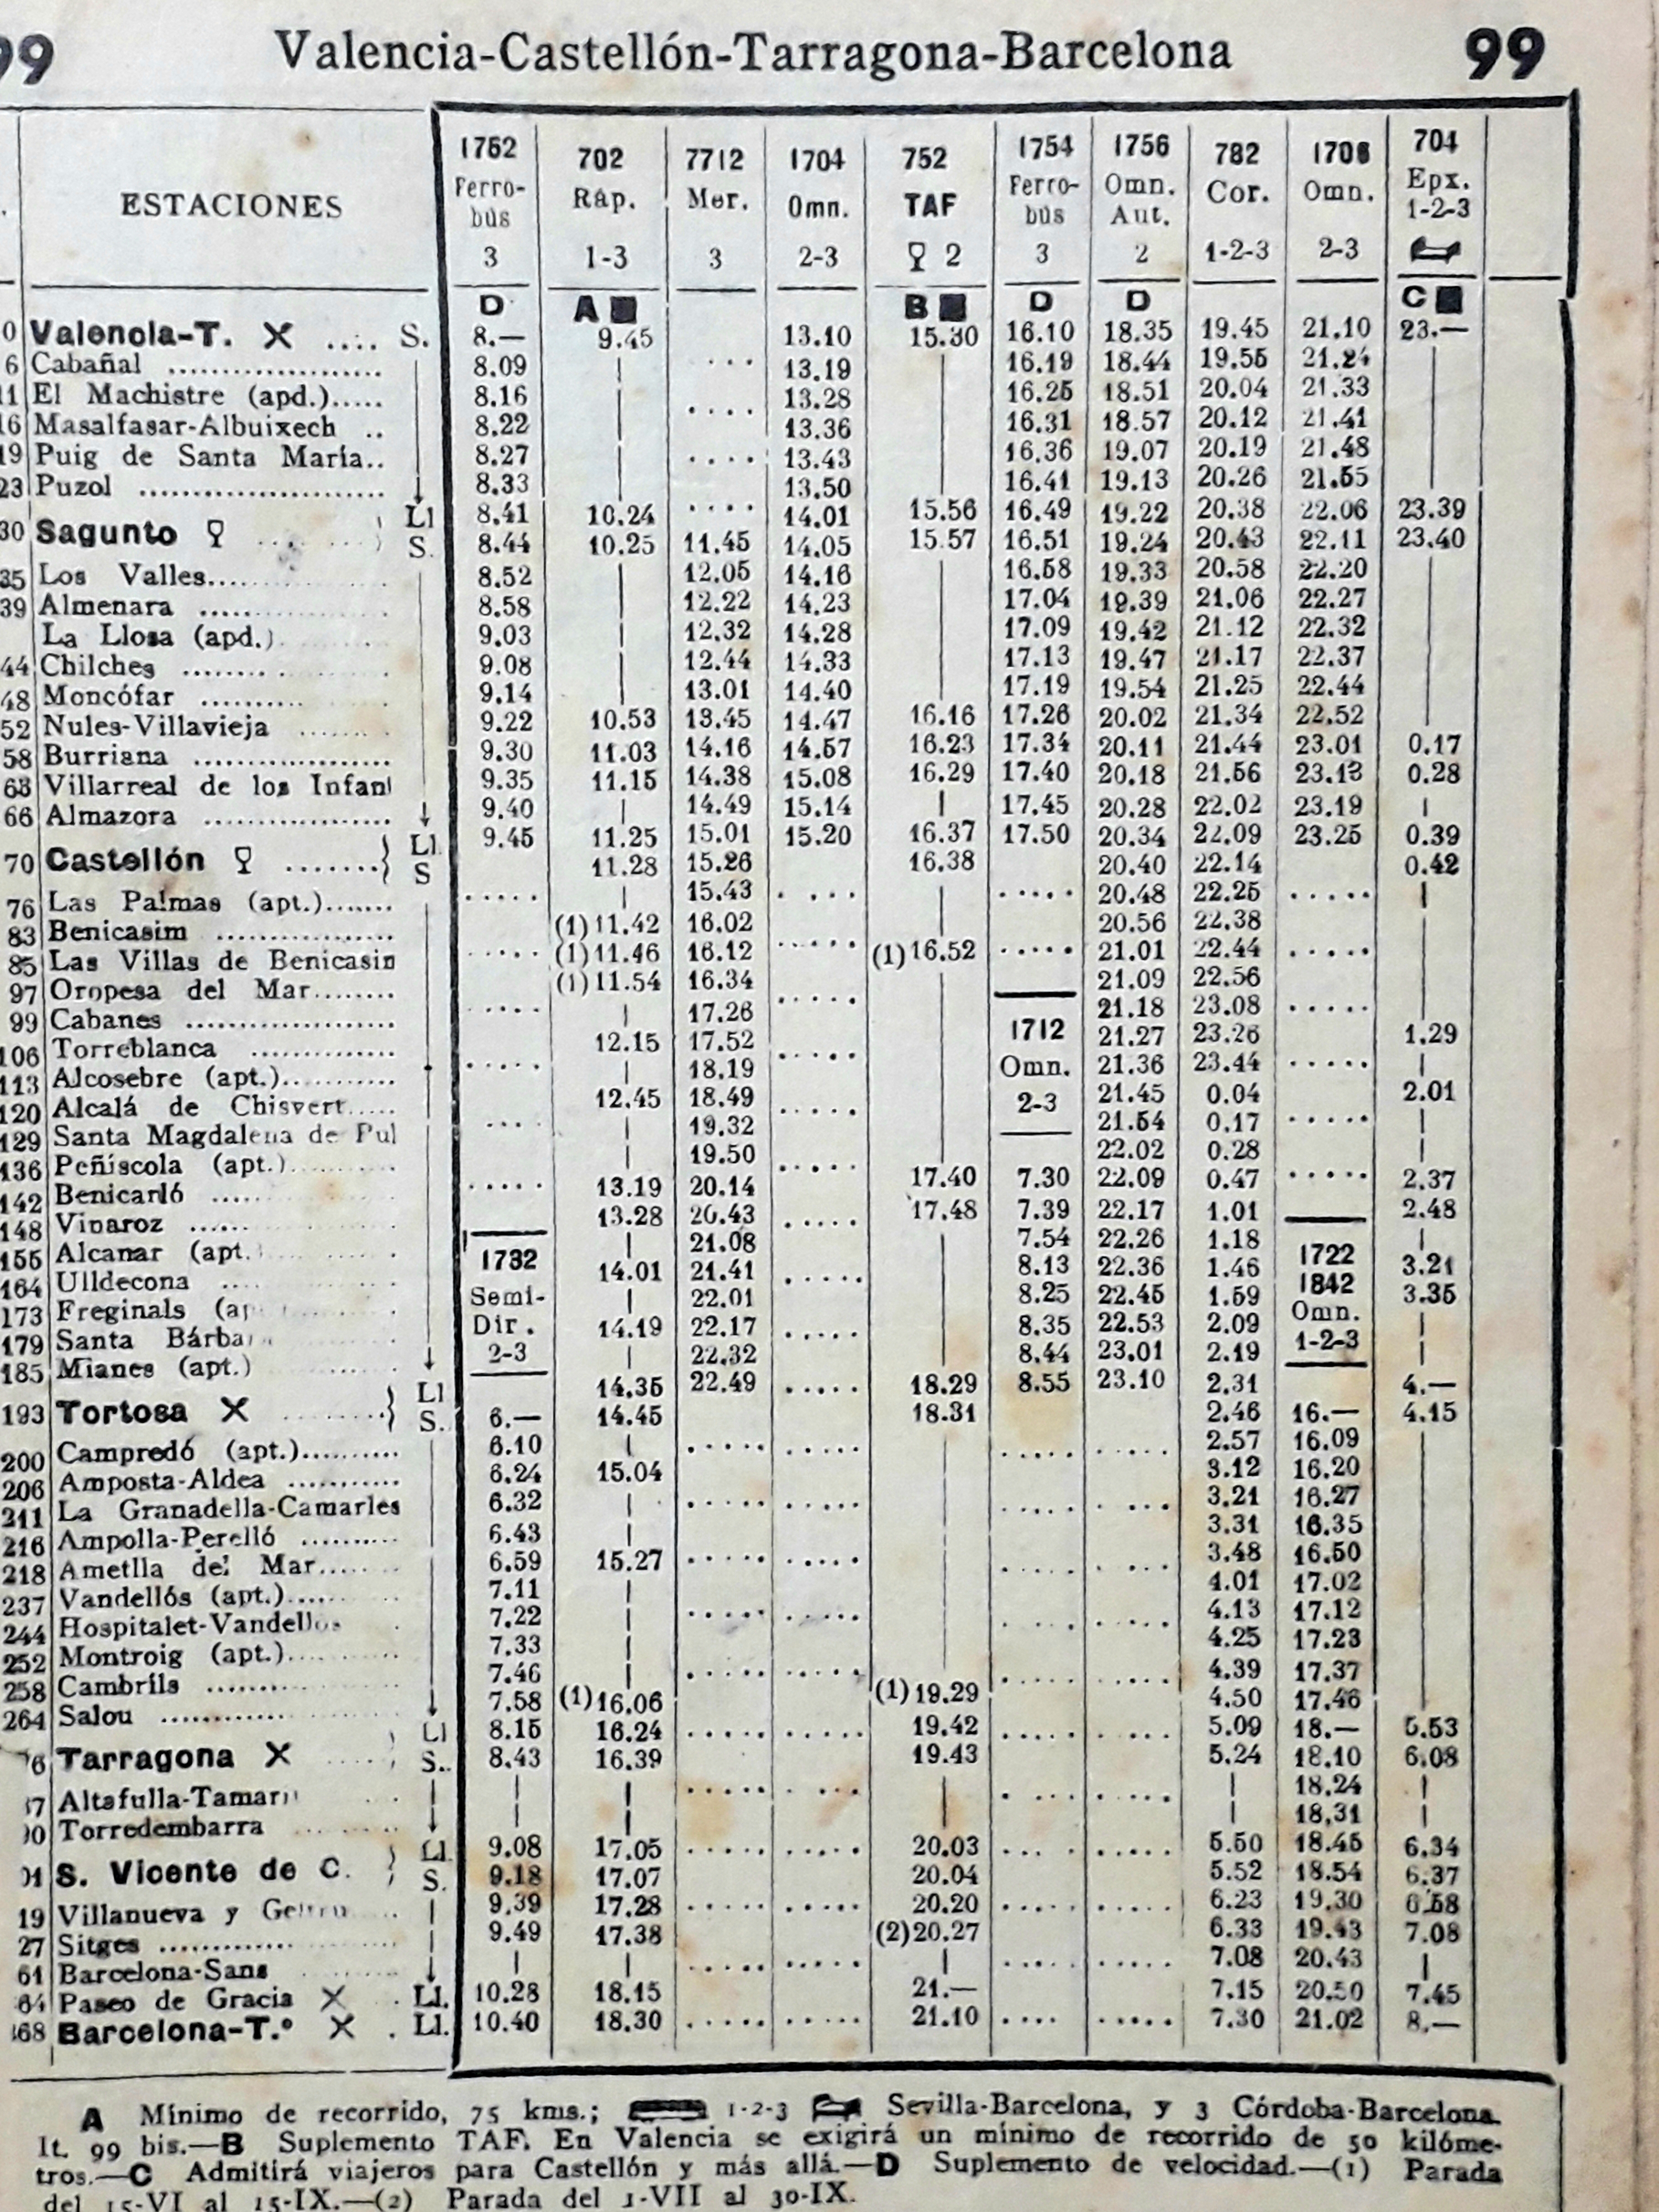 99 Valencia-Castellón-Tarragona-Barcelona 99
ESTACIONES
1762 702 7712 1704 752 1754 1756 782 1706 704
Ferrobús Ráp. Mer. Omn. TAF Ferrobús Omn. Aut. Cor. Omn. Epx. 1-2-3
3 1-3 3 2-3 2 3 2 1-2-3 2-3
D A B D D C
0 Valencia-T. .... S. 8.— 9.45 13.10 15.30 16.10 18.35 19.45 21.10 23.—
6 Cabañal 8.09 13.19 16.19 18.44 19.55 21.24
11 El Machistre (apd.) 8.16 13.28 16.25 18.51 20.04 21.33
16 Masalfasar-Albuixech 8.22 13.36 16.31 18.57 20.12 21.41
19 Puig de Santa María 8.27 13.43 16.36 19.07 20.19 21.48
23 Puzol 8.33 13.50 16.41 19.13 20.26 21.55
30 Sagunto Ll 8.41 10.24 14.01 15.56 16.49 19.22 20.38 22.06 23.39
S. 8.44 10.25 11.45 14.05 15.57 16.51 19.24 20.43 22.11 23.40
35 Los Valles 8.52 12.05 14.16 16.58 19.33 20.58 22.20
39 Almenara 8.58 12.22 14.23 17.04 19.39 21.06 22.27
La Llosa (apd.) 9.03 12.32 14.28 17.09 19.42 21.12 22.32
44 Chilches 9.08 12.44 14.33 17.13 19.47 21.17 22.37
48 Moncófar 9.14 13.01 14.40 17.19 19.54 21.25 22.44
52 Nules-Villavieja 9.22 10.53 13.45 14.47 16.16 17.26 20.02 21.34 22.52
58 Burriana 9.30 11.03 14.16 14.57 16.23 17.34 20.11 21.44 23.01 0.17
63 Villarreal de los Infant 9.35 11.15 14.38 15.08 16.29 17.40 20.18 21.56 23.13 0.28
66 Almazora 9.40 14.49 15.14 17.45 20.28 22.02 23.19
70 Castellón Ll. 9.45 11.25 15.01 15.20 16.37 17.50 20.34 22.09 23.25 0.39
S 11.28 15.26 16.38 20.40 22.14 0.42
76 Las Palmas (apt.) 15.43 20.48 22.25
83 Benicasim (1)11.42 16.02 20.56 22.38
85 Las Villas de Benicasin (1)11.46 16.12 (1)16.52 21.01 22.44
97 Oropesa del Mar (1)11.54 16.34 21.09 22.56
99 Cabanes 17.26 21.18 23.08
106 Torreblanca 12.15 17.52 21.27 23.26 1.29
113 Alcosebre (apt.) 18.19 21.36 23.44
120 Alcalá de Chisvert 12.45 18.49 21.45 0.04 2.01
129 Santa Magdalena de Pul 19.32 21.54 0.17
136 Peñíscola (apt.) 19.50 22.02 0.28
1712
Omn.
2-3
142 Benicarló 13.19 20.14 17.40 7.30 22.09 0.47 2.37
148 Vinaroz 13.28 20.43 17.48 7.39 22.17 1.01 2.48
155 Alcanar (apt. 21.08 7.54 22.26 1.18
164 Ulldecona 14.01 21.41 8.13 22.36 1.46 3.21
173 Freginals (ap 22.01 8.25 22.45 1.59 3.35
179 Santa Bárbara 14.19 22.17 8.35 22.53 2.09
185 Mianes (apt.) 22.32 8.44 23.01 2.19
1732 1722
Semi- 1842
Dir. Omn.
2-3 1-2-3
193 Tortosa Ll 14.35 22.49 18.29 8.55 23.10 2.31 4.—
S. 6.— 14.45 18.31 2.46 16.— 4.15
200 Campredó (apt.) 6.10 2.57 16.09
206 Amposta-Aldea 6.24 15.04 3.12 16.20
211 La Granadella-Camarles 6.32 3.21 16.27
216 Ampolla-Perelló 6.43 3.31 16.35
218 Ametlla del Mar 6.59 15.27 3.48 16.50
237 Vandellós (apt.) 7.11 4.01 17.02
244 Hospitalet-Vandellos 7.22 4.13 17.12
252 Montroig (apt.) 7.33 4.25 17.23
258 Cambrils 7.46 4.39 17.37
264 Salou 7.58 (1)16.06 (1)19.29 4.50 17.46
76 Tarragona Ll 8.15 16.24 19.42 5.09 18.— 5.53
S.. 8.43 16.39 19.43 5.24 18.10 6.08
Altafulla-Tamari 18.24
Torredembarra 18.31
S. Vicente de C. Ll. 9.08 17.05 20.03 5.50 18.45 6.34
S. 9.18 17.07 20.04 5.52 18.54 6.37
19 Villanueva y Geltru 9.39 17.28 20.20 6.23 19.30 6.58
27 Sitges 9.49 17.38 (2)20.27 6.33 19.43 7.08
61 Barcelona-Sans 7.08 20.43
64 Paseo de Gracia Ll. 10.28 18.15 21.— 7.15 20.50 7.45
368 Barcelona-T.º Ll. 10.40 18.30 21.10 7.30 21.02 8.—
A Mínimo de recorrido, 75 kms.; 1-2-3 Sevilla-Barcelona, y 3 Córdoba-Barcelona.
It. 99 bis.—B Suplemento TAF. En Valencia se exigirá un mínimo de recorrido de 50 kilóme-
tros.—C Admitirá viajeros para Castellón y más allá.—D Suplemento de velocidad.—(1) Parada
del 15-VI al 15-IX.—(2) Parada del 1-VII al 30-IX.